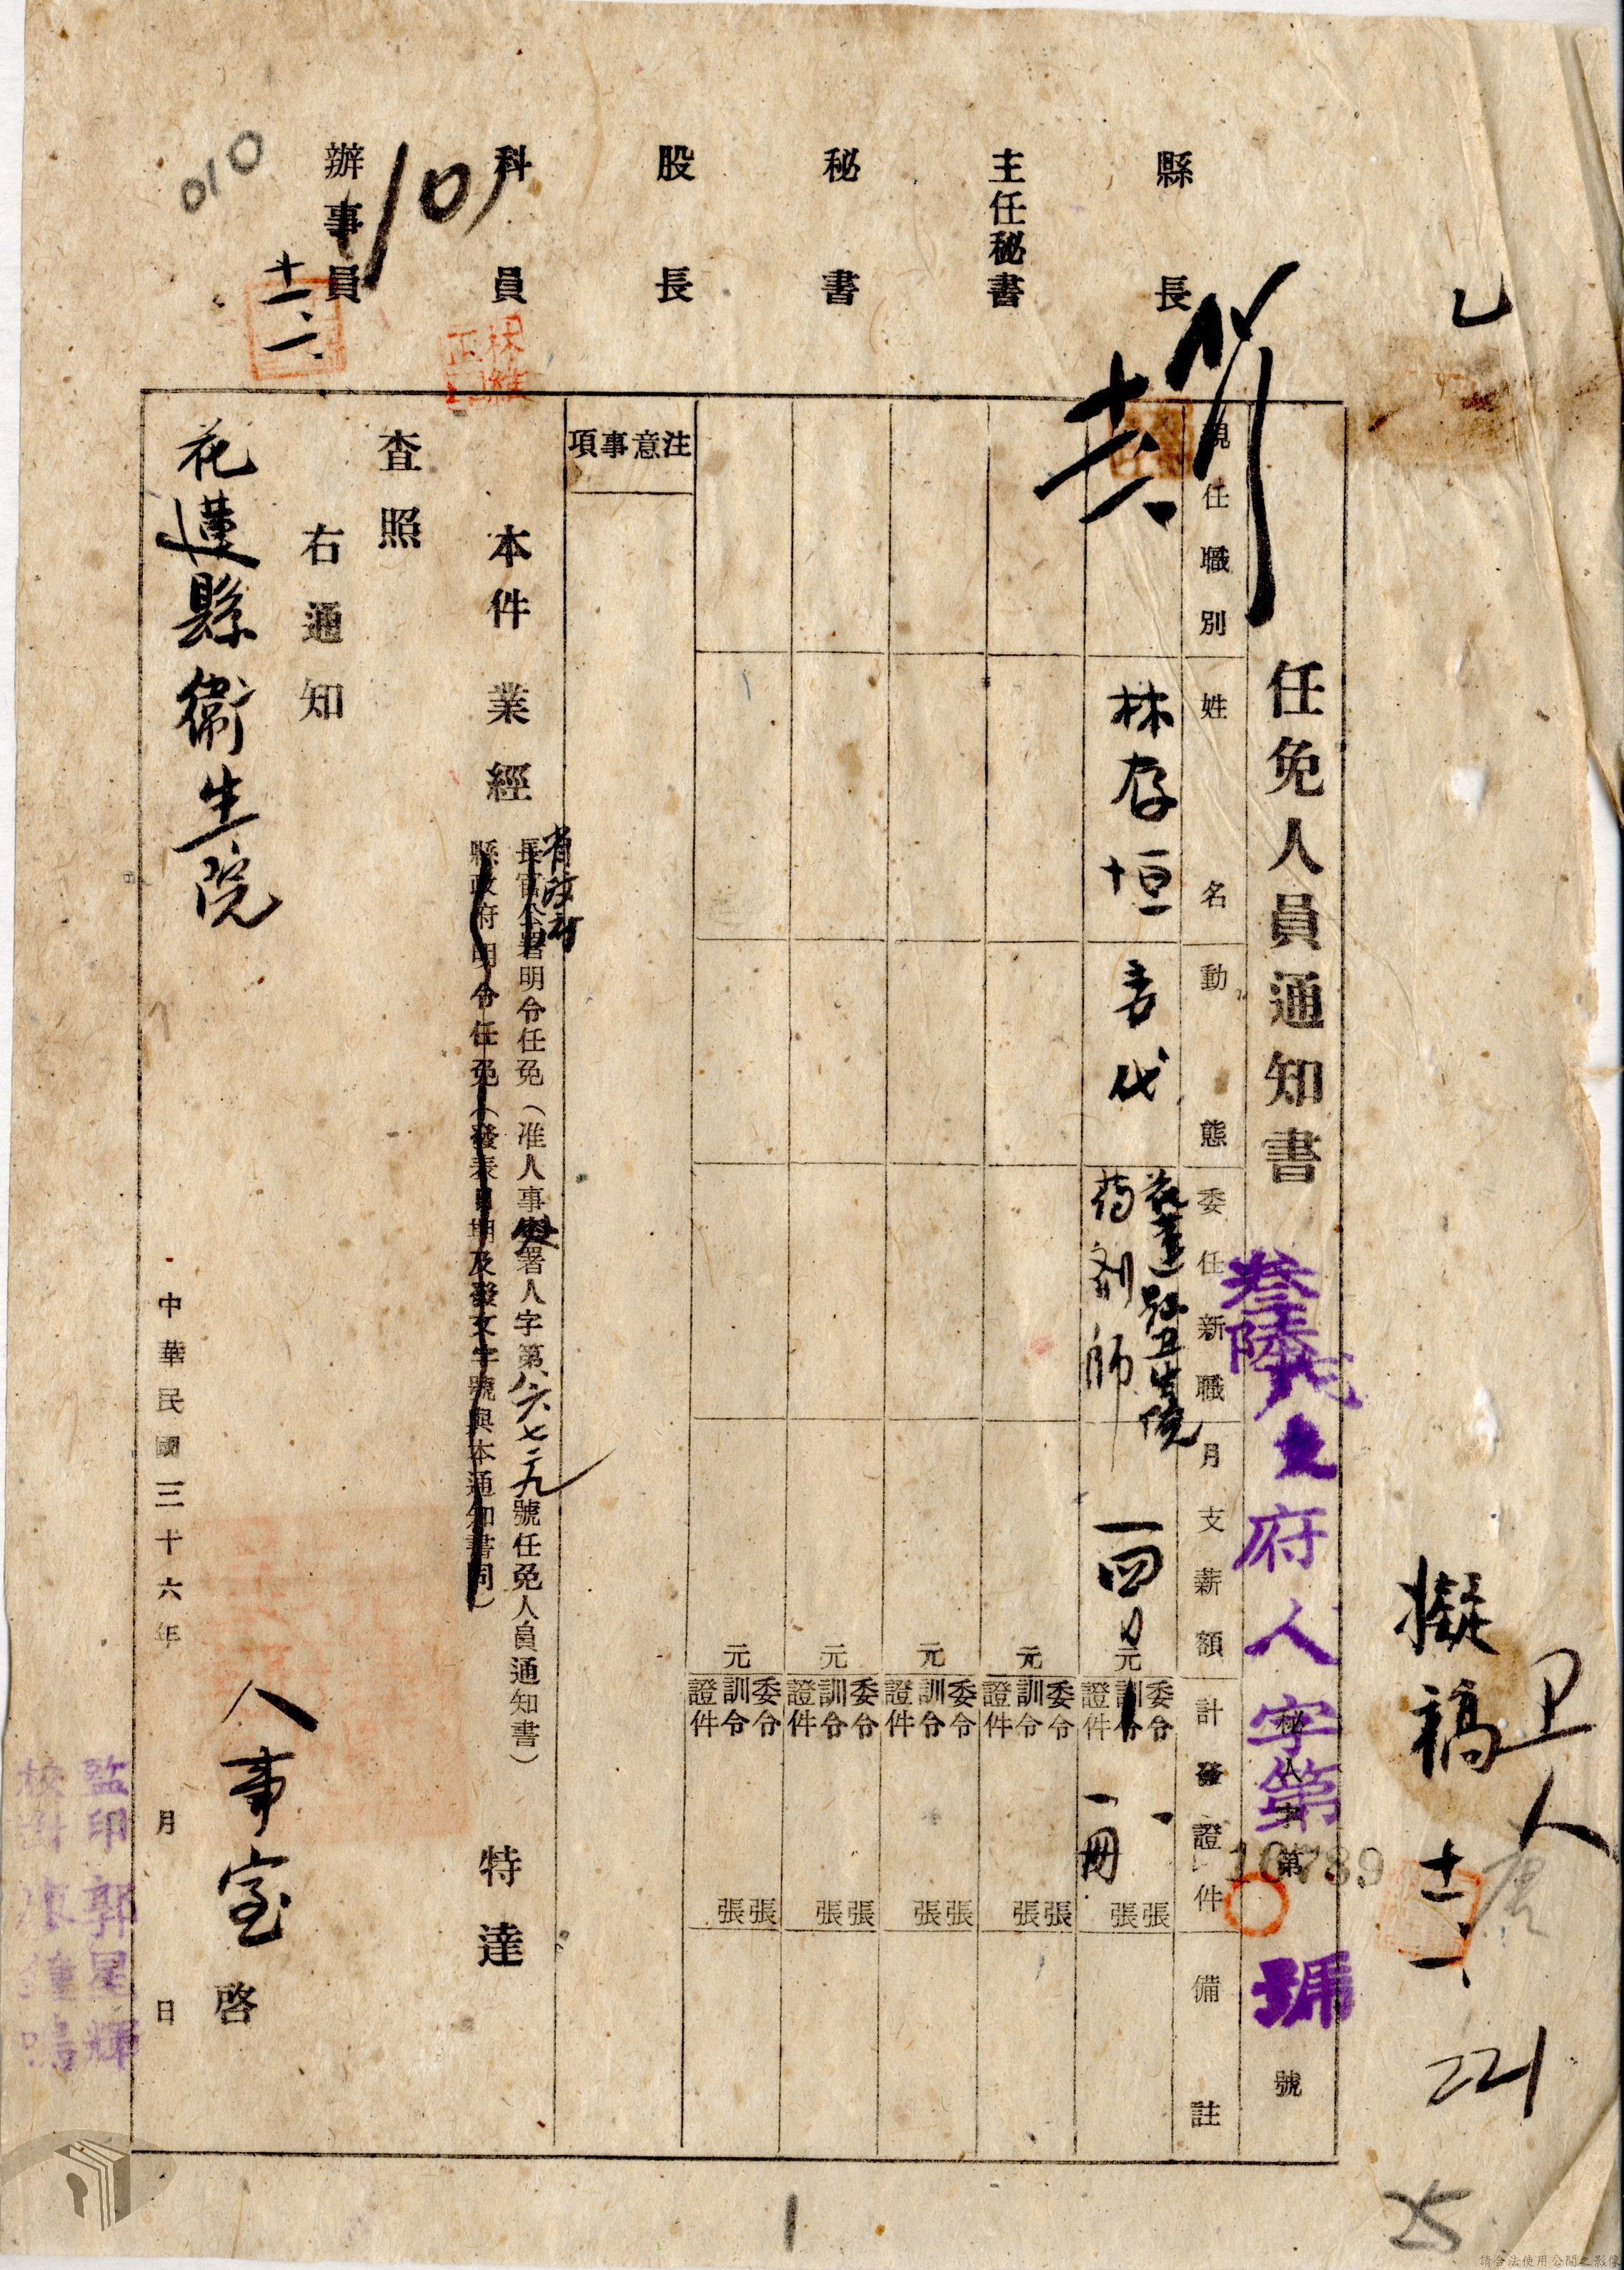 乙
卫人
擬稿 十二、一、
221
25
縣長
主任秘書
秘書
股長
科員
辦事員
101
十二、一、
010
任免人員通知書
叁陸
府人字第
號
秘人字第
號
10789
現任職別
姓名
動態
委任新職
月支薪額
計發證件
備註
林存恒
花蓮縣卫生院
药剂師
一四〇元
委令 一張
訓令 張
證件 一冊
元
委令 張
訓令 張
證件
元
委令 張
訓令 張
證件
元
委令 張
訓令 張
證件
元
委令 張
訓令 張
證件
注意事項
本件業經
省政府
長官公署明令任免(准人事處署人字第八六七二九號任免人員通知書)
縣政府明令任免(發表日期及發文字號與本通知書同)
特達
查照
右通知
花蓮縣衛生院
人事室啓
中華民國三十六年 月 日
監印 郭星輝
校對 陳鐘鳴
1
請合法使用公開之影像